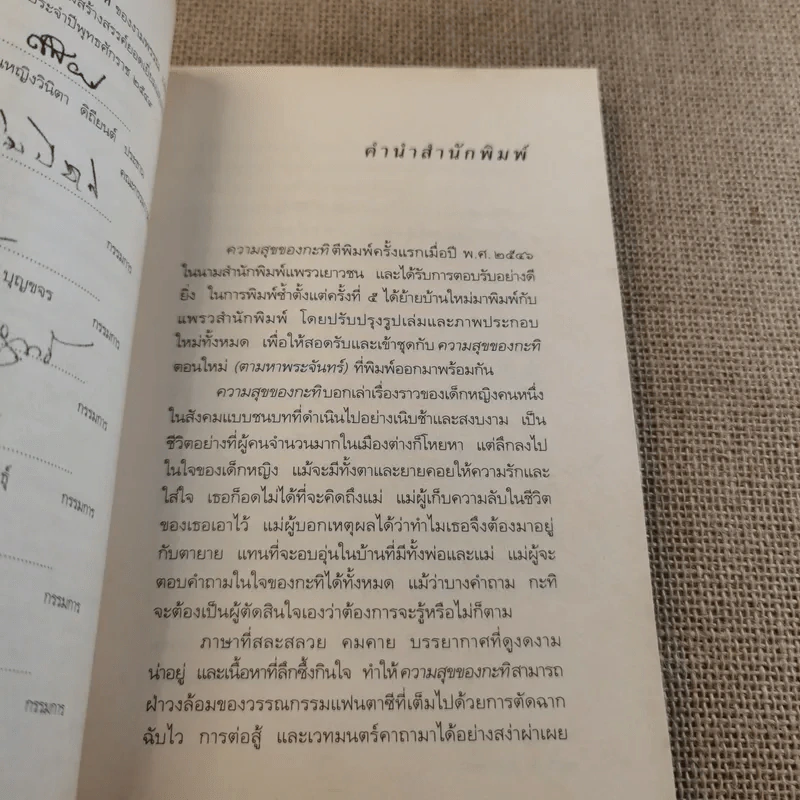 ของงามพรรณ
ประจำปีพุทธศักราช ๒๕๔๙
วินิตา ดิถียนต์ ประธาน
กรรมการ
บุญขจร
กรรมการ
กรรมการ
กรรมการ
กรรมการ
กรรมการ
คำนำสำนักพิมพ์
ความสุขของกะทิ ตีพิมพ์ครั้งแรกเมื่อปี พ.ศ. ๒๕๔๖
ในนามสำนักพิมพ์แพรวเยาวชน และได้รับการตอบรับอย่างดี
ยิ่ง ในการพิมพ์ซ้ำตั้งแต่ครั้งที่ ๕ ได้ย้ายบ้านใหม่มาพิมพ์กับ
แพรวสำนักพิมพ์ โดยปรับปรุงรูปเล่มและภาพประกอบ
ใหม่ทั้งหมด เพื่อให้สอดรับและเข้าชุดกับ ความสุขของกะทิ
ตอนใหม่ (ตามหาพระจันทร์) ที่พิมพ์ออกมาพร้อมกัน
ความสุขของกะทิ บอกเล่าเรื่องราวของเด็กหญิงคนหนึ่ง
ในสังคมแบบชนบทที่ดำเนินไปอย่างเนิบช้าและสงบงาม เป็น
ชีวิตอย่างที่ผู้คนจำนวนมากในเมืองต่างก็โหยหา แต่ลึกลงไป
ในใจของเด็กหญิง แม้จะมีทั้งตาและยายคอยให้ความรักและ
ใส่ใจ เธอก็อดไม่ได้ที่จะคิดถึงแม่ แม่ผู้เก็บความลับในชีวิต
ของเธอเอาไว้ แม่ผู้บอกเหตุผลได้ว่าทำไมเธอจึงต้องมาอยู่
กับตายาย แทนที่จะอบอุ่นในบ้านที่มีทั้งพ่อและแม่ แม่ผู้จะ
ตอบคำถามในใจของกะทิได้ทั้งหมด แม้ว่าบางคำถาม กะทิ
จะต้องเป็นผู้ตัดสินใจเองว่าต้องการจะรู้หรือไม่ก็ตาม
ภาษาที่สละสลวย คมคาย บรรยากาศที่ดูงดงาม
น่าอยู่ และเนื้อหาที่ลึกซึ้งกินใจ ทำให้ ความสุขของกะทิ สามารถ
ฝ่าวงล้อมของวรรณกรรมแฟนตาซีที่เต็มไปด้วยการตัดฉาก
ฉับไว การต่อสู้ และเวทมนตร์คาถามาได้อย่างสง่าผ่าเผย